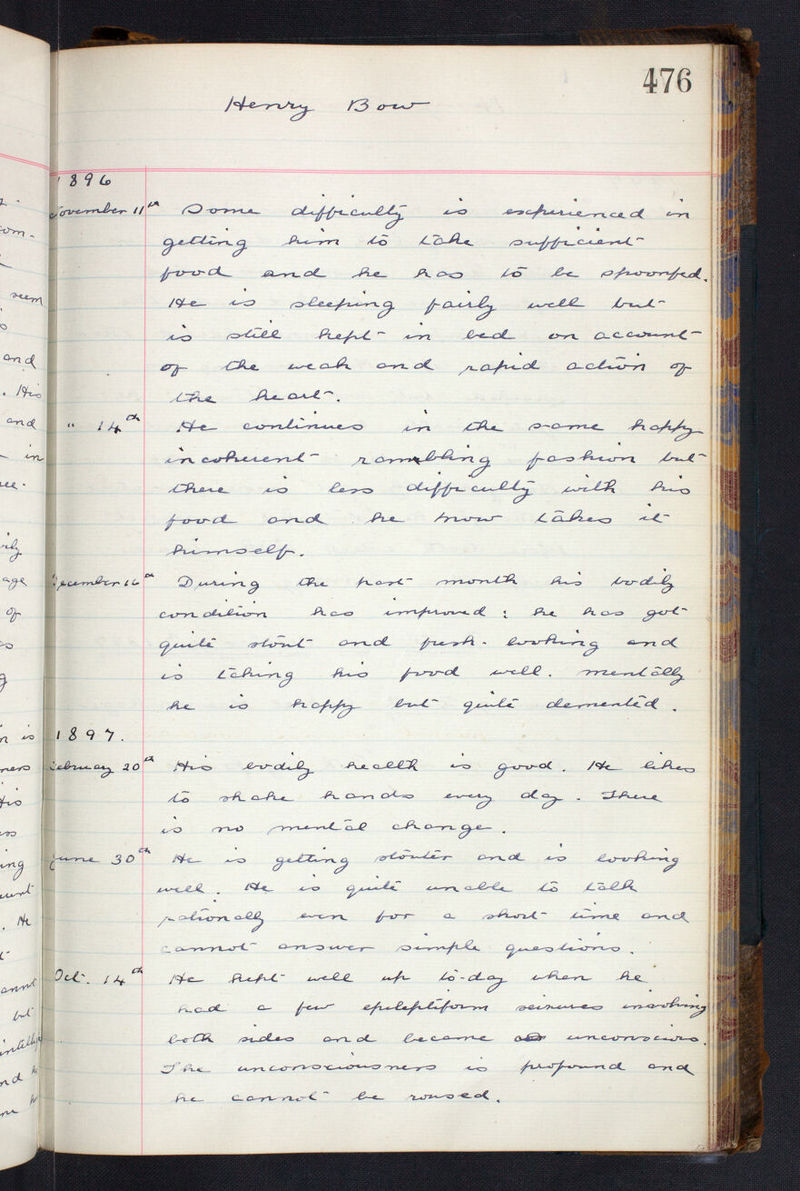 476
Henry Bow
1896
November 11th Some difficulty is experienced in
getting him to take sufficient
food and he has to be spoonfed.
He is sleeping fairly well but
is still kept in bed on account
of the weak and rapid action of
the heart.
" 14th He continues in the same happy
incoherent rambling fashion but
there is less difficulty with his
food and he now takes it
himself.
December 16th During the past month his bodily
condition has improved: he has got
quite stout and fresh-looking and
is taking his food well. Mentally
he is happy but quite demented.
1897.
February 20th His bodily health is good. He likes
to shake hands every day. There
is no mental change.
June 30th He is getting stouter and is looking
well. He is quite unable to talk
rationally even for a short time and
cannot answer simple questions.
Oct. 14th He kept well up to-day when he
had a few epileptiform seizures involving
both sides and became unconscious.
The unconsciousness is profound and
he cannot be roused.